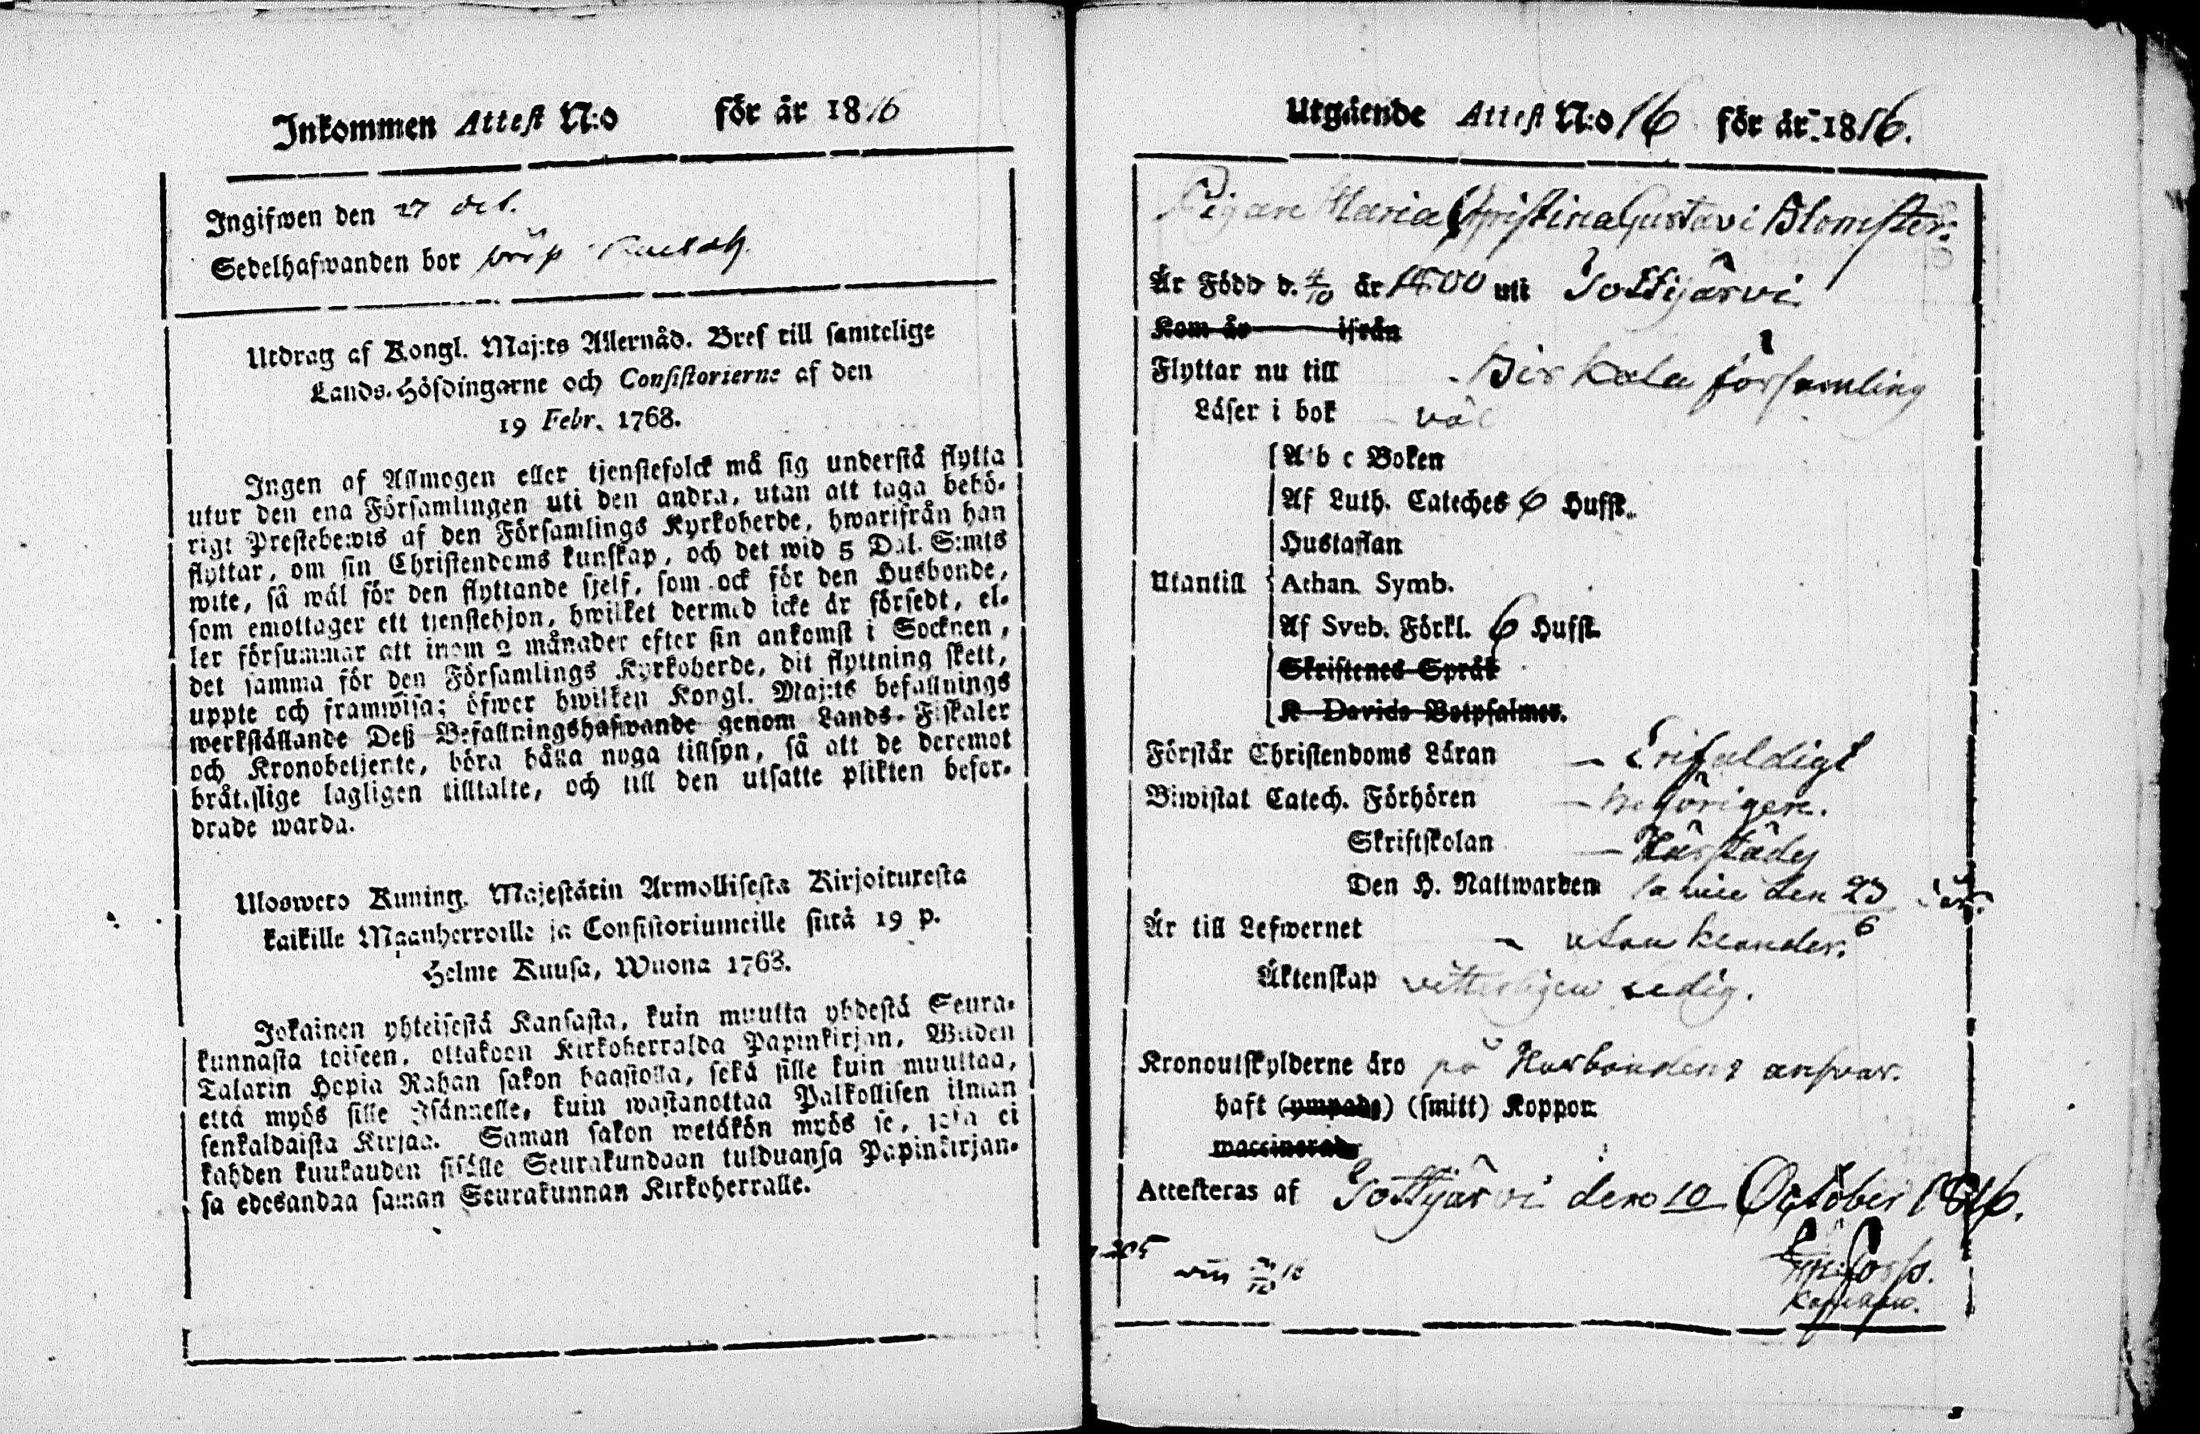 Inkommen Attest N:o för år 1816
Ingifwen den 27 oct.
Sedelhafwanden bor
Utdrag af Kongl. Maj:ts Allernåd. Bref till samtelige
Lands-Höfdingarne och Consistorierne af den
19 Febr. 1768.
Ingen af Allmogen eller tjenstefolck må sig understå flytta
utur den ena Församlingen uti den andra, utan att taga behö-
rigt Prestebewis af den Församlings Kyrkoherde, hwarifrån han
flyttar, om sin Christendoms kunskap, och det wid 5 Dal. S:mts
wite, så wäl för den flyttande sjelf, som ock för den Husbonde,
som emottager ett tjenstehjon, hwilket dermed icke är försedt, el-
ler försummar att inom 2 månader efter sin ankomst i Socknen,
det samma för den Församlings Kyrkoherde, dit flyttning skett,
uppte och framwisa; öfwer hwilken Kongl. Maj:ts befallnings
werkställande Deß Befallningshafwande genom Lands-Fiskaler
och Kronobetjente, böra hålla noga tillsyn, så att de deremot
bråtslige lagligen tilltalte, och till den utsatte plikten befor-
drade warda.
Ulosweto Kuning. Majestätin Armollisesta Kirjoituxesta
kaikille Maanherroille ja Consistoriumeille siitä 19 p.
Helme Kuusa, Wuona 1768.
Jokainen yhteisestä Kansasta, kuin muutta yhdestä Seura-
kunnasta toiseen, ottakoon Kirkoherralda Papinkirjan, Wiiden
Talarin Hopia Rahan sakon haastolla, sekä sille kuin muuttaa,
että myös sille Isännelle, kuin wastanottaa Palkollisen ilman
senkaldaista Kirjaa. Saman sakon wetäkön myös se, joka ei
kahden kuukauden sisälle Seurakundaan tulduansa Papinkirjan-
sa edesandaa saman Seurakunnan Kirkoherralle.
Utgående Attest N:o 16 för år 1816.
Pigan Maria Christina Gustavi Blomster:
Är Född d. 4/10 år 1800 uti Tottijärvi
Kom år ifrån
Flyttar nu till Birkala församling
Läser i bok väl
A b c Boken
Af Luth. Cateches 6 Hufst.
Hustaflan
Utantill Athan. Symb.
Af Sveb. Förkl. 6 Hufst.
Skriftenes Språk
K Davids Botpsalmer.
Förstår Christendoms Läran – Enfaldigt
Biwistat Catech. Förhören – behörigen.
Skriftskolan – Härstädes
Den H. Nattwarden den 23/6
Är till Lefwernet – utan klander.
Äktenskap vitterligen ledig.
Kronoutskylderne äro på Husbondens ansvar.
haft (ympade) (smitt) Koppor
waccinerad
Attesteras af Tottijärvi den 10 October 1816.